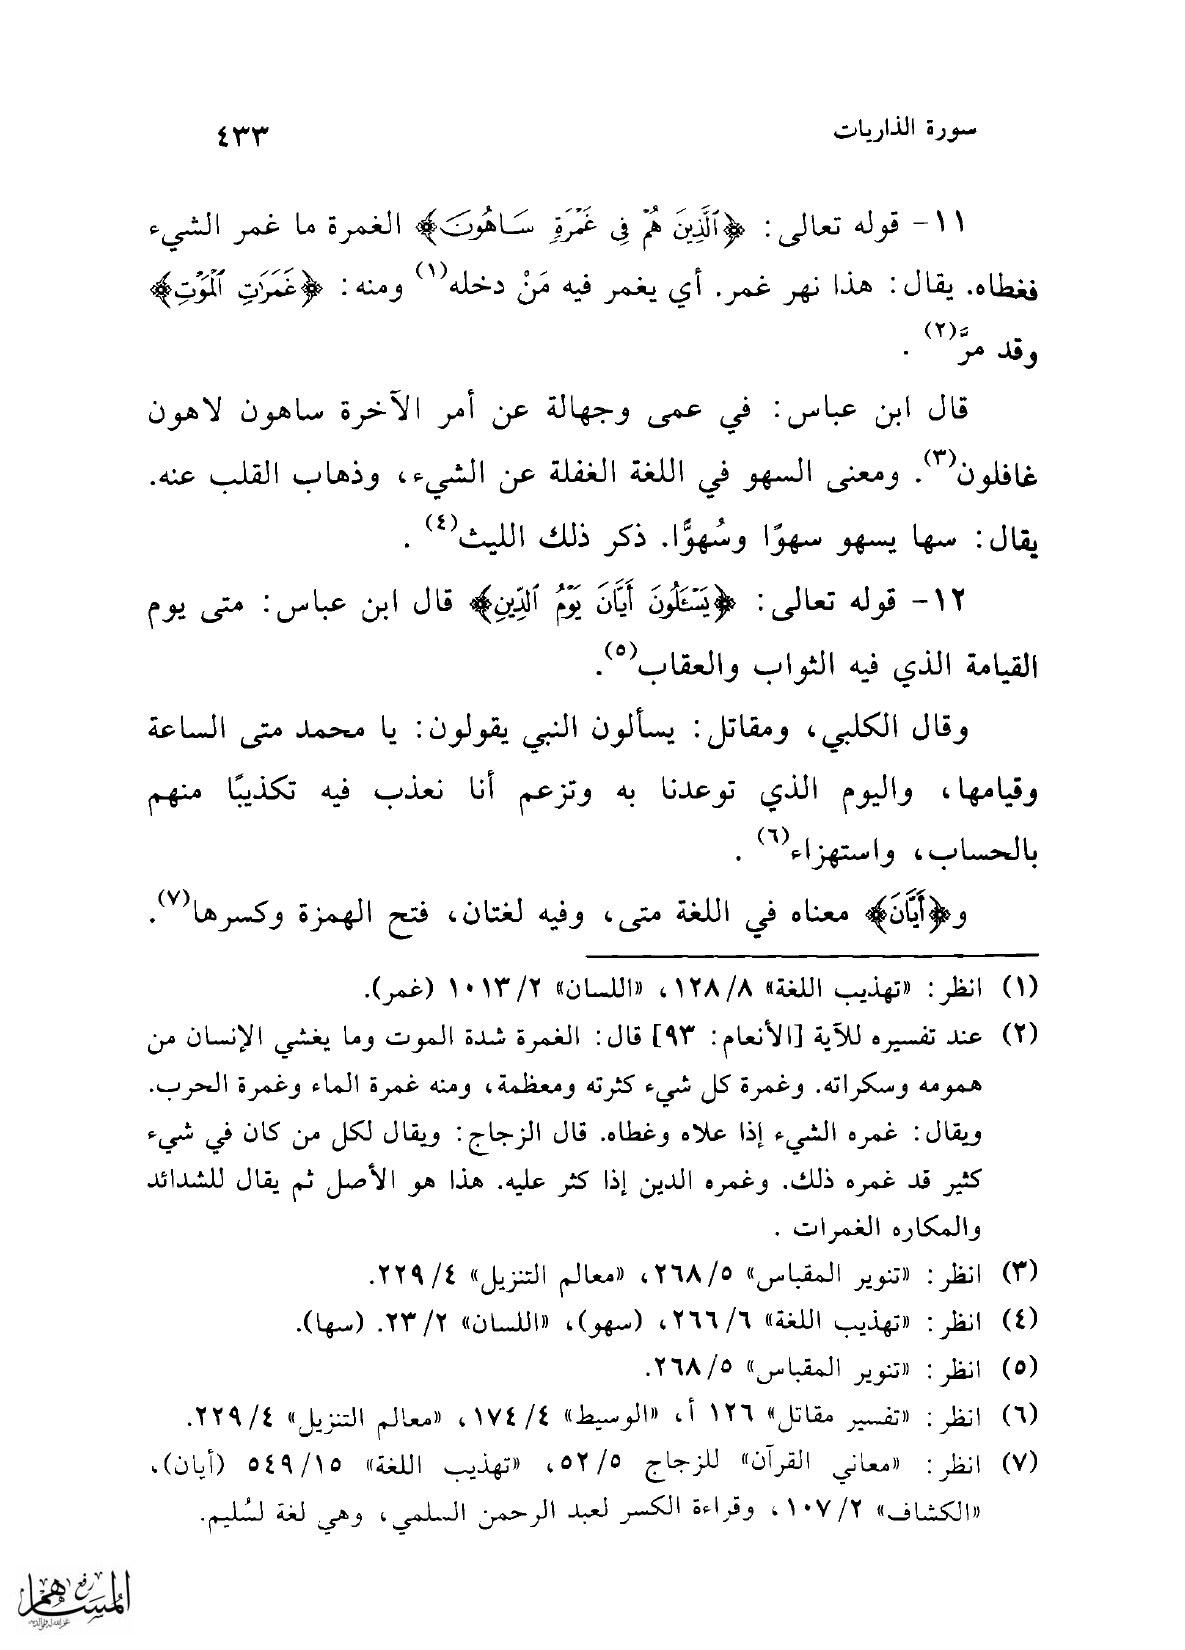 سورة الذاريات
٤٣٣
١١- قوله تعالى: ﴿ٱلَّذِينَ هُمْ فِى غَمْرَةٍ سَاهُونَ﴾ الغمرة ما غمر الشيء
فغطاه. يقال: هذا نهر غمر. أي يغمر فيه مَنْ دخله(١) ومنه: ﴿غَمَرَٰتِ ٱلْمَوْتِ﴾
وقد مرَّ(٢) .
قال ابن عباس: في عمى وجهالة عن أمر الآخرة ساهون لاهون
غافلون(٣). ومعنى السهو في اللغة الغفلة عن الشيء، وذهاب القلب عنه.
يقال: سها يسهو سهوًا وسُهوًّا. ذكر ذلك الليث(٤) .
١٢- قوله تعالى: ﴿يَسْـَٔلُونَ أَيَّانَ يَوْمُ ٱلدِّينِ﴾ قال ابن عباس: متى يوم
القيامة الذي فيه الثواب والعقاب(٥).
وقال الكلبي، ومقاتل: يسألون النبي يقولون: يا محمد متى الساعة
وقيامها، واليوم الذي توعدنا به وتزعم أنا نعذب فيه تكذيبًا منهم
بالحساب، واستهزاء(٦) .
و﴿أَيَّانَ﴾ معناه في اللغة متى، وفيه لغتان، فتح الهمزة وكسرها(٧).
(١) انظر: «تهذيب اللغة» ١٢٨/٨، «اللسان» ١٠١٣/٢ (غمر).
(٢) عند تفسيره للآية [الأنعام: ٩٣] قال: الغمرة شدة الموت وما يغشي الإنسان من
همومه وسكراته. وغمرة كل شيء كثرته ومعظمة، ومنه غمرة الماء وغمرة الحرب.
ويقال: غمره الشيء إذا علاه وغطاه. قال الزجاج: ويقال لكل من كان في شيء
كثير قد غمره ذلك. وغمره الدين إذا كثر عليه. هذا هو الأصل ثم يقال للشدائد
والمكاره الغمرات .
(٣) انظر: «تنوير المقباس» ٢٦٨/٥، «معالم التنزيل» ٢٢٩/٤.
(٤) انظر: «تهذيب اللغة» ٢٦٦/٦، (سهو)، «اللسان» ٢٣/٢. (سها).
(٥) انظر: «تنوير المقباس» ٢٦٨/٥.
(٦) انظر: «تفسير مقاتل» ١٢٦ أ، «الوسيط» ١٧٤/٤، «معالم التنزيل» ٢٢٩/٤.
(٧) انظر: «معاني القرآن» للزجاج ٥٢/٥، «تهذيب اللغة» ٥٤٩/١٥ (أيان)،
«الكشاف» ١٠٧/٢، وقراءة الكسر لعبد الرحمن السلمي، وهي لغة لسُليم.
رفع
المساهم